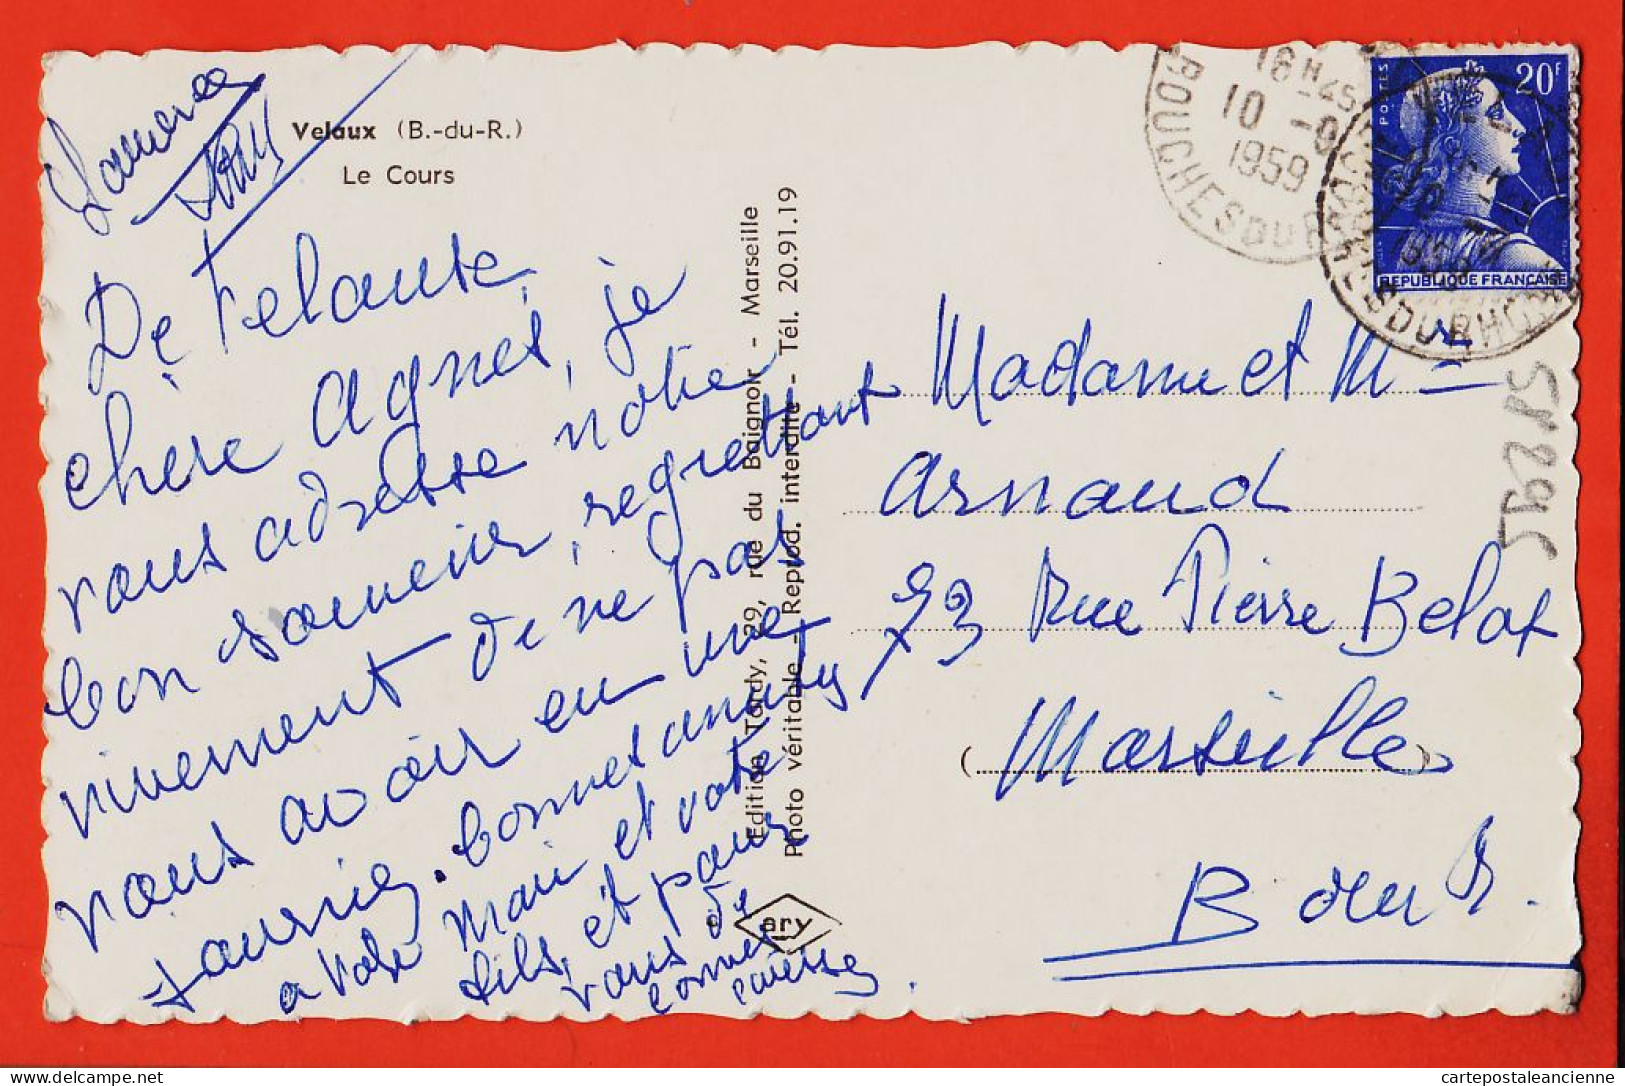 Velaux (B.-du-R.)
Le Cours
De Velaux
chère Agnes, je
vous adresse notre
bon souvenir, regrettant
vivement de ne pas
vous avoir en une
bonnes amities
a votre mari et votre
fils, et pour
vous de
bonnes
caresses.
Edition Tardy, 29, rue du Baignoir - Marseille
Photo véritable - Reprod. interdite - Tél. 20.91.19
ary
16H-45
10 -9
1959
BOUCHES DU R
POSTES
20F
REPUBLIQUE FRANÇAISE
Madame et Mr
Arnaud
73 Rue Pierre Belot
Marseille
B du R.
58295
cartepostaleancienne
www.delcampe.net